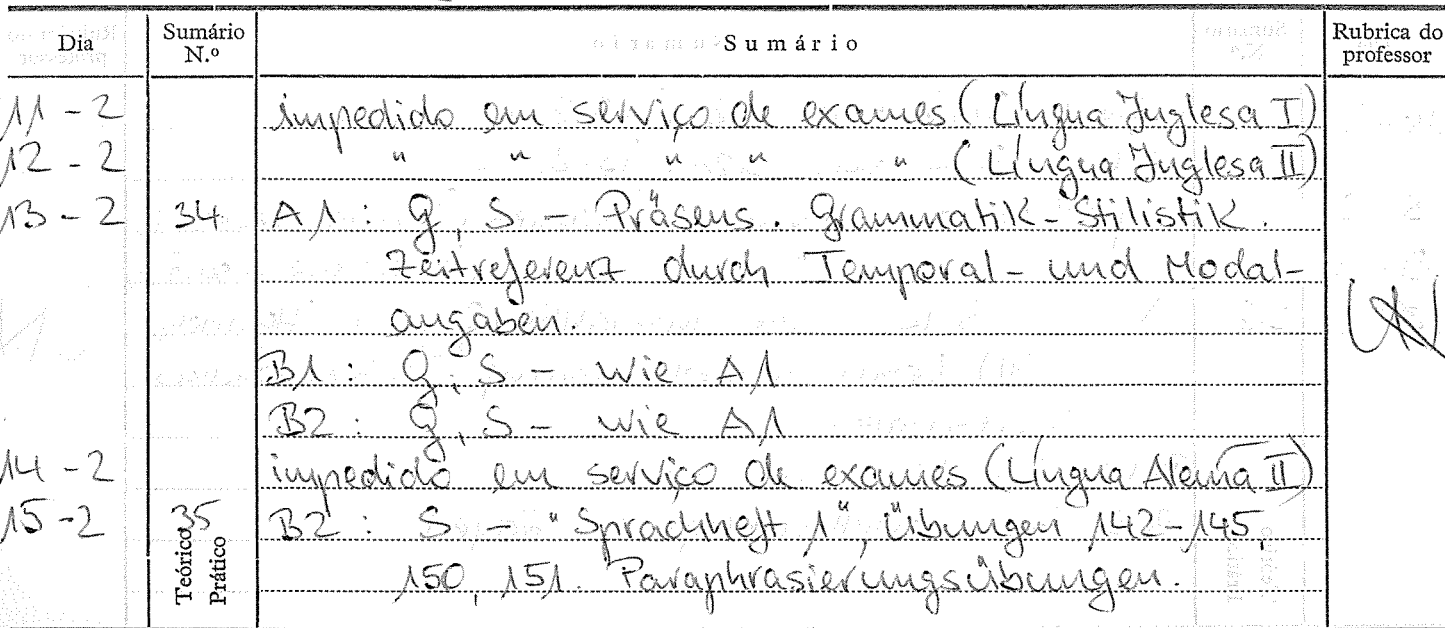 Dia Sumário N.º Sumário Rubrica do professor
11 - 2 impedido em serviço de exames (Língua Inglesa I)
12 - 2 " " " " " (Língua Inglesa II)
13 - 2 34 A1 : G, S - Präsens. Grammatik-Stilistik.
Zeitreferenz durch Temporal- und Modal-
angaben.
B1 : G, S - wie A1
B2 : G, S - wie A1
14 - 2 impedido em serviço de exames (Língua Alemã II)
15 - 2 35 B2 : S - "Sprachheft 1", Übungen 142-145,
Teórico Prático 150, 151. Paraphrasierungsübungen.